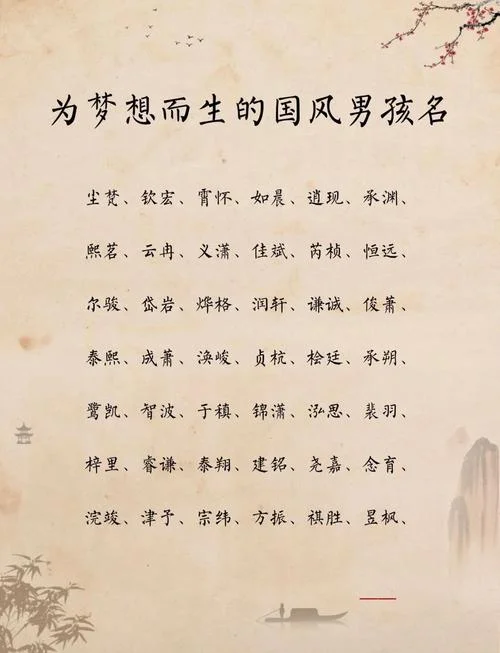 为梦想而生的国风男孩名
尘梵、钦宏、霄怀、如晨、逍现、承渊、
熙茗、云冉、义潇、佳斌、芮桢、恒远、
尔骏、岱岩、烨格、润轩、谦诚、俊萧、
泰熙、成萧、涣峻、贞杭、桧廷、承朔、
鹭凯、智波、于稹、锦潇、泓思、裴羽、
梓里、睿谦、泰翔、建铭、尧嘉、念育、
浣竣、津予、宗纬、方振、祺胜、昱枫、